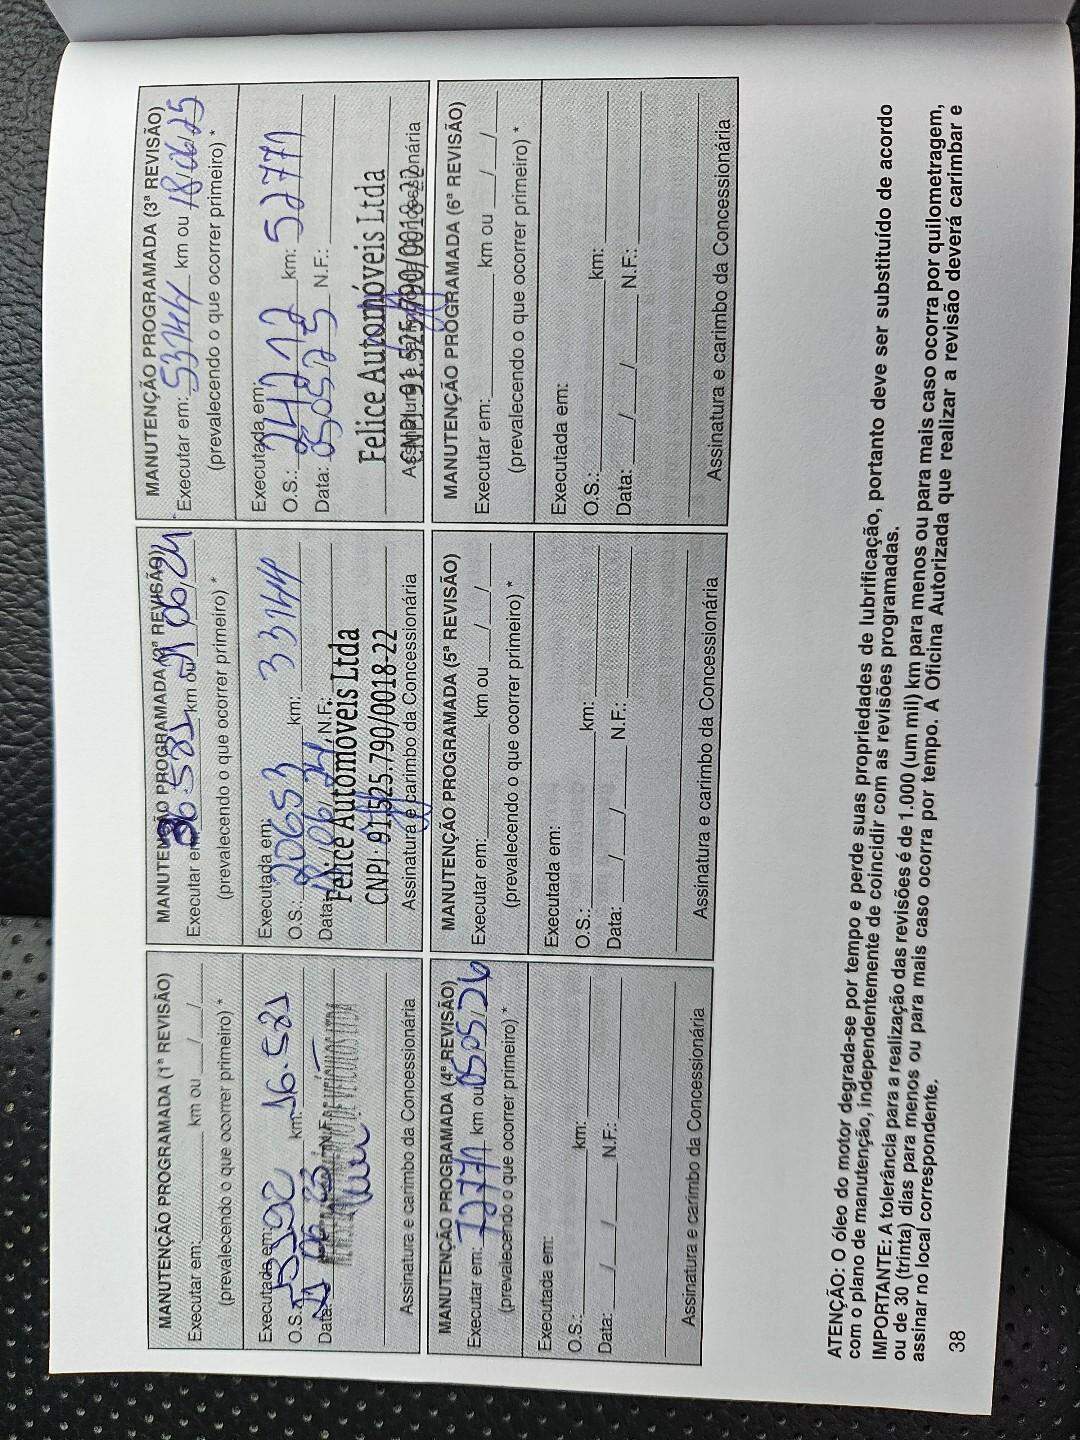 MANUTENÇÃO PROGRAMADA (1ª REVISÃO)
Executar em: km ou / /
(prevalecendo o que ocorrer primeiro) *
Executada em:
O.S.: km: 16.521
Data: 21 06 23 N.F.:
Assinatura e carimbo da Concessionária
MANUTENÇÃO PROGRAMADA (2ª REVISÃO)
Executar em: 36.521 km ou 21/06/24
(prevalecendo o que ocorrer primeiro) *
Executada em:
O.S.: 20653 km: 33144
Data: 18/06/24 N.F.:
Felice Automóveis Ltda
CNPJ: 91.525.790/0018-22
Assinatura e carimbo da Concessionária
MANUTENÇÃO PROGRAMADA (3ª REVISÃO)
Executar em: 53144 km ou 18/06/25
(prevalecendo o que ocorrer primeiro) *
Executada em:
O.S.: 24212 km: 52771
Data: 050525 N.F.:
Felice Automóveis Ltda
CNPJ: 91.525.790/0018-22
Assinatura e carimbo da Concessionária
MANUTENÇÃO PROGRAMADA (4ª REVISÃO)
Executar em: 72771 km ou 05/05/26
(prevalecendo o que ocorrer primeiro) *
Executada em:
O.S.: km:
Data: / / N.F.:
Assinatura e carimbo da Concessionária
MANUTENÇÃO PROGRAMADA (5ª REVISÃO)
Executar em: km ou / /
(prevalecendo o que ocorrer primeiro) *
Executada em:
O.S.: km:
Data: / / N.F.:
Assinatura e carimbo da Concessionária
MANUTENÇÃO PROGRAMADA (6ª REVISÃO)
Executar em: km ou / /
(prevalecendo o que ocorrer primeiro) *
Executada em:
O.S.: km:
Data: / / N.F.:
Assinatura e carimbo da Concessionária
ATENÇÃO: O óleo do motor degrada-se por tempo e perde suas propriedades de lubrificação, portanto deve ser substituído de acordo
com o plano de manutenção, independentemente de coincidir com as revisões programadas.
IMPORTANTE: A tolerância para a realização das revisões é de 1.000 (um mil) km para menos ou para mais caso ocorra por quilometragem,
ou de 30 (trinta) dias para menos ou para mais caso ocorra por tempo. A Oficina Autorizada que realizar a revisão deverá carimbar e
assinar no local correspondente.
38